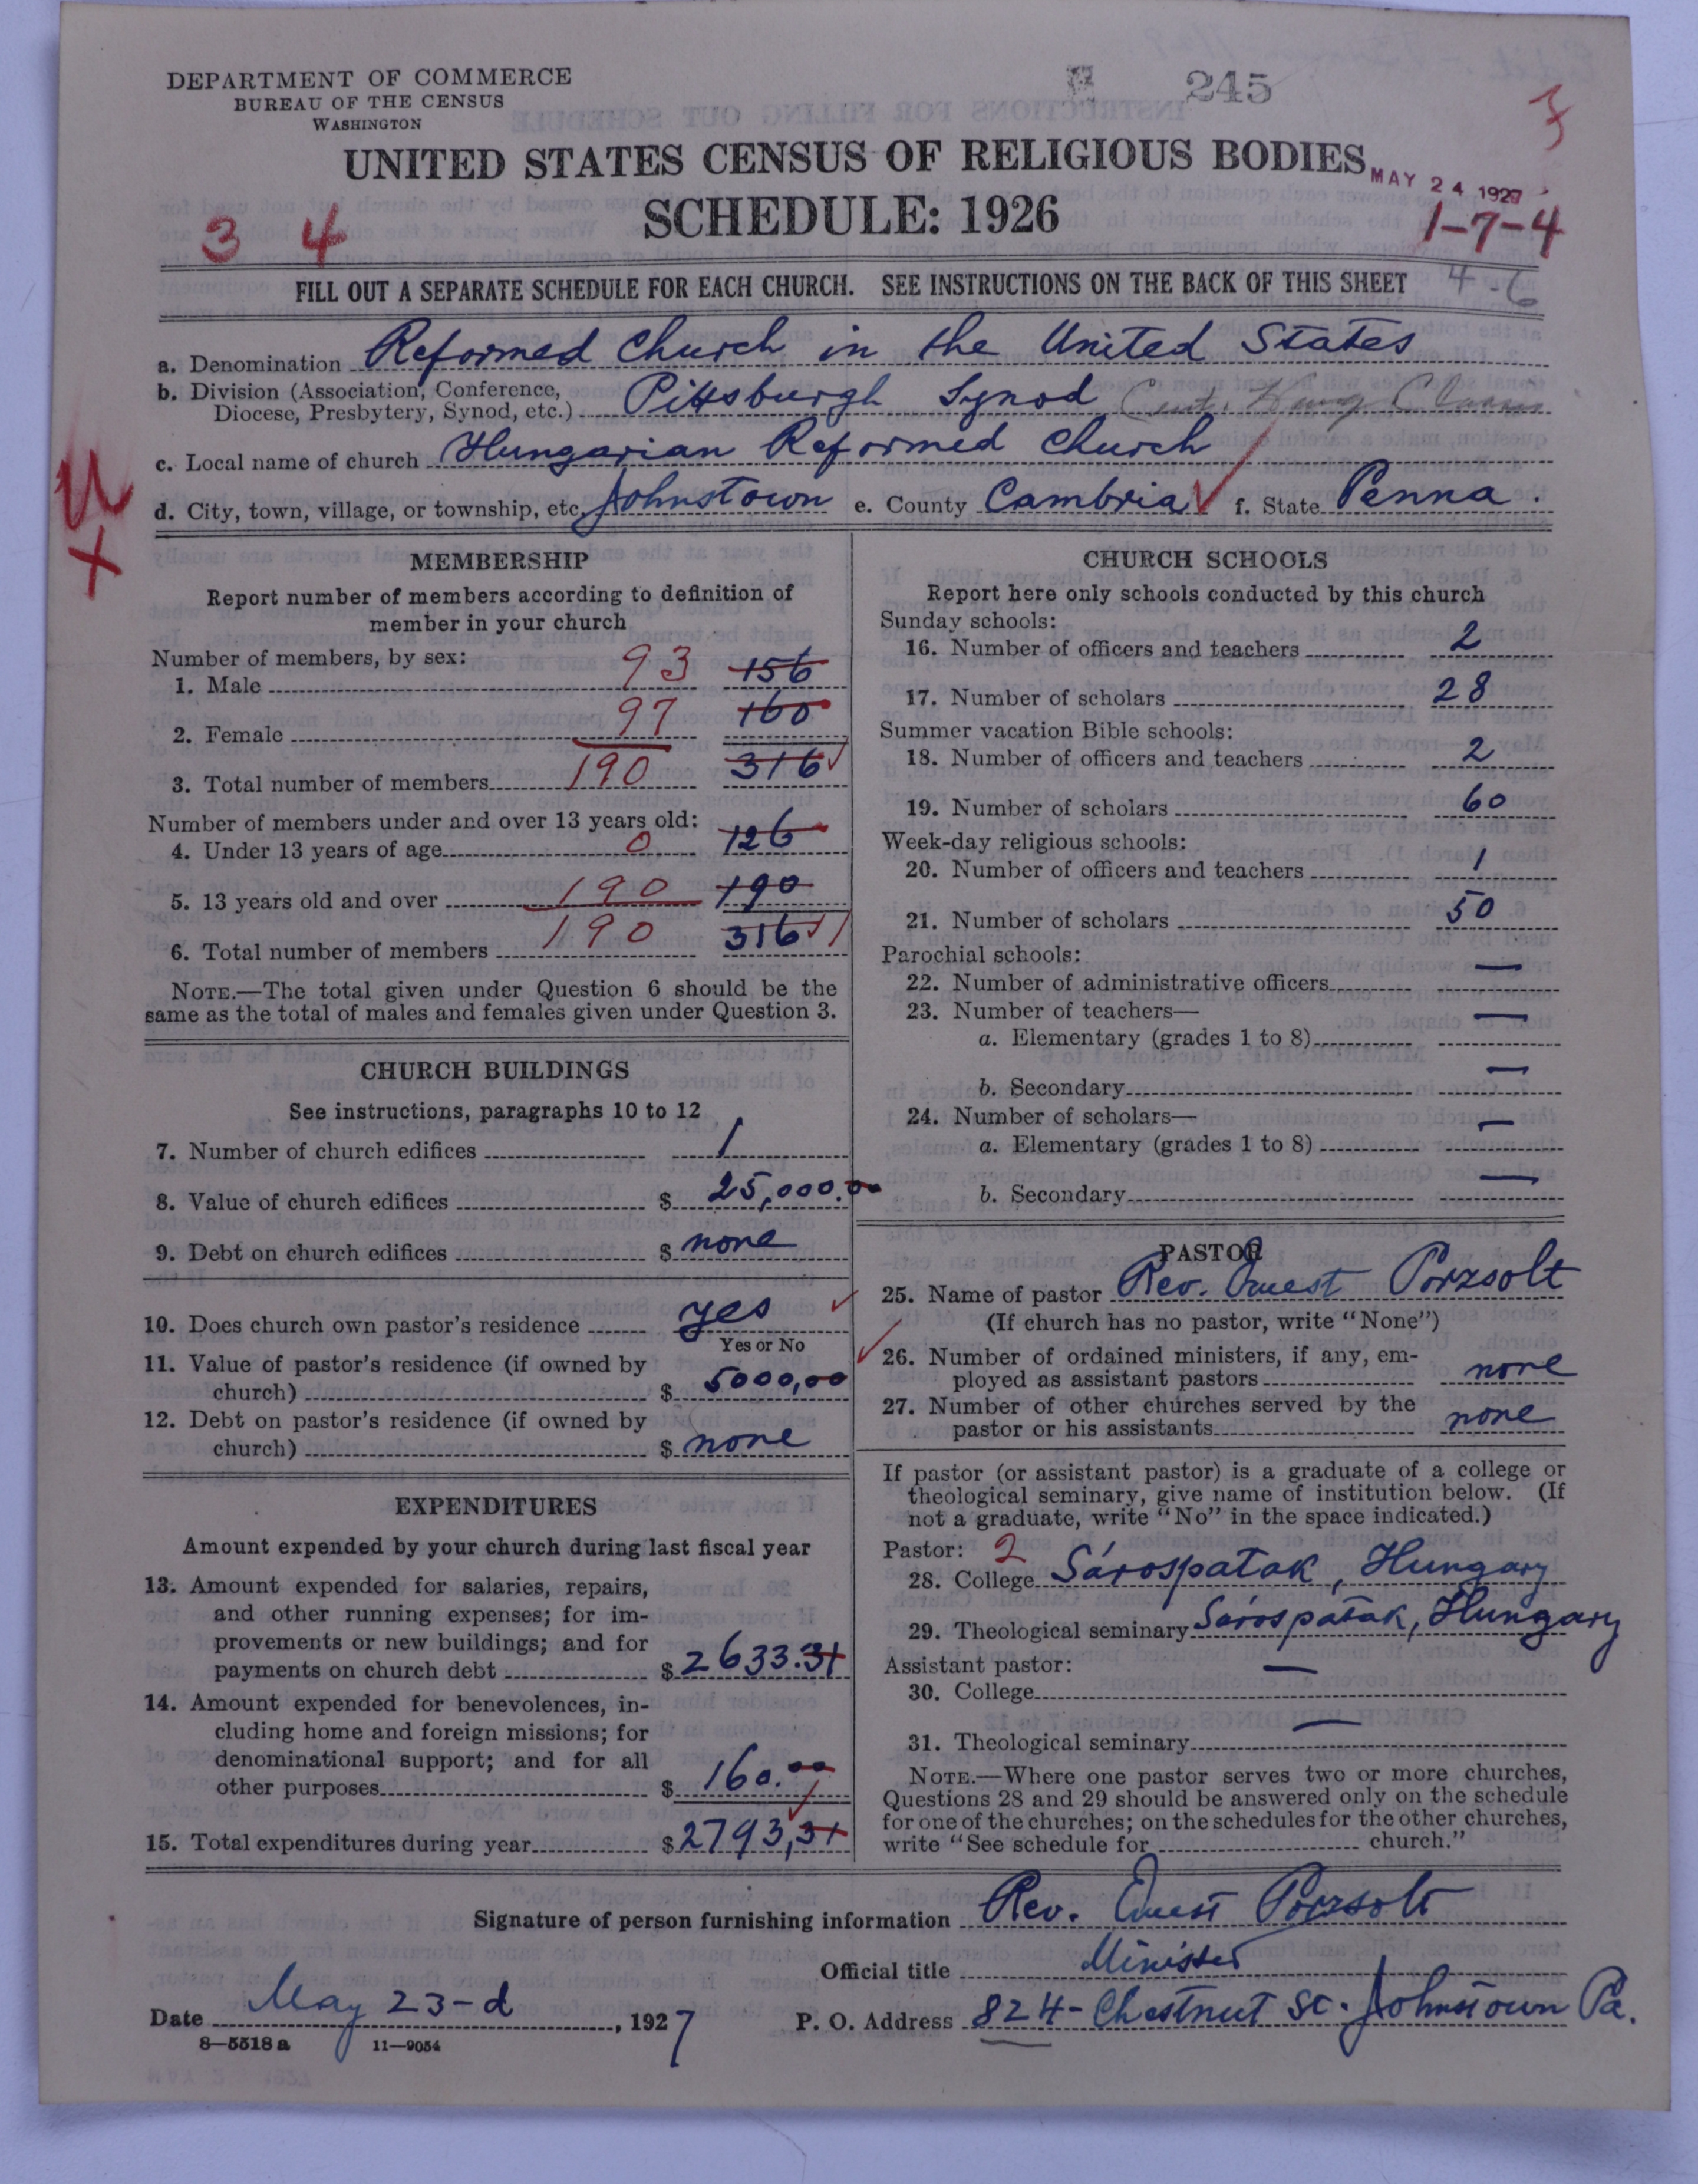 DEPARTMENT OF COMMERCE
BUREAU OF THE CENSUS
WASHINGTON
245
UNITED STATES CENSUS OF RELIGIOUS BODIES
MAY 24 1927
SCHEDULE: 1926
1-7-4
3 4
FILL OUT A SEPARATE SCHEDULE FOR EACH CHURCH. SEE INSTRUCTIONS ON THE BACK OF THIS SHEET 4-6
a. Denomination Reformed Church in the United States
b. Division (Association, Conference,
Diocese, Presbytery, Synod, etc.) Pittsburgh Synod
c. Local name of church Hungarian Reformed Church
d. City, town, village, or township, etc. Johnstown e. County Cambria f. State Penna.
MEMBERSHIP
Report number of members according to definition of
member in your church
Number of members, by sex:
1. Male 93 156
2. Female 97 160
3. Total number of members 190 316
Number of members under and over 13 years old:
4. Under 13 years of age 0 126
5. 13 years old and over 190 190
6. Total number of members 190 316
NOTE.—The total given under Question 6 should be the
same as the total of males and females given under Question 3.
CHURCH BUILDINGS
See instructions, paragraphs 10 to 12
7. Number of church edifices 1
8. Value of church edifices $ 25,000.00
9. Debt on church edifices $ none
10. Does church own pastor's residence yes
Yes or No
11. Value of pastor's residence (if owned by
church) $ 5000,00
12. Debt on pastor's residence (if owned by
church) $ none
EXPENDITURES
Amount expended by your church during last fiscal year
13. Amount expended for salaries, repairs,
and other running expenses; for im-
provements or new buildings; and for
payments on church debt $ 2633.31
14. Amount expended for benevolences, in-
cluding home and foreign missions; for
denominational support; and for all
other purposes $ 160.00
15. Total expenditures during year $ 2793,31
CHURCH SCHOOLS
Report here only schools conducted by this church
Sunday schools:
16. Number of officers and teachers 2
17. Number of scholars 28
Summer vacation Bible schools:
18. Number of officers and teachers 2
19. Number of scholars 60
Week-day religious schools:
20. Number of officers and teachers 1
21. Number of scholars 50
Parochial schools:
22. Number of administrative officers —
23. Number of teachers— —
a. Elementary (grades 1 to 8)
b. Secondary —
24. Number of scholars— —
a. Elementary (grades 1 to 8)
b. Secondary —
PASTOR
25. Name of pastor Rev. Ernest Porzsolt
(If church has no pastor, write "None")
26. Number of ordained ministers, if any, em-
ployed as assistant pastors none
27. Number of other churches served by the
pastor or his assistants none
If pastor (or assistant pastor) is a graduate of a college or
theological seminary, give name of institution below. (If
not a graduate, write "No" in the space indicated.)
Pastor: 2
28. College Sárospatak, Hungary
29. Theological seminary Sárospatak, Hungary
Assistant pastor:
30. College —
31. Theological seminary —
NOTE.—Where one pastor serves two or more churches,
Questions 28 and 29 should be answered only on the schedule
for one of the churches; on the schedules for the other churches,
write "See schedule for church."
Signature of person furnishing information Rev. Ernest Porzsolt
Official title Minister
Date May 23-d, 1927 P. O. Address 824- Chestnut St. Johnstown Pa.
8—5518 a 11—9054